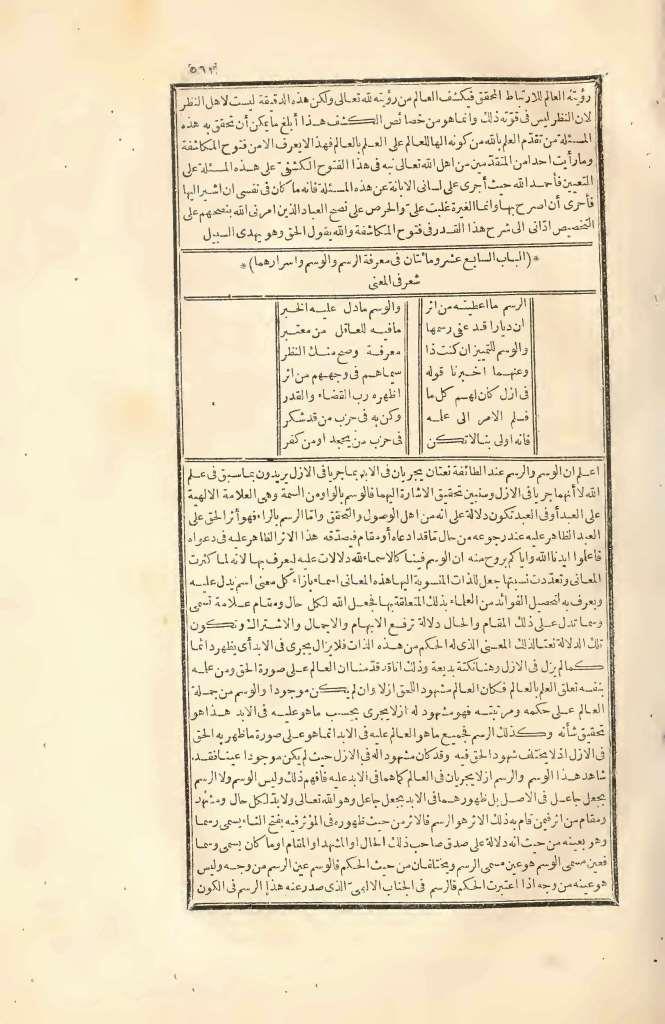 ٥٦٣
رؤيته العالم للارتباط المحقق فيكشف العالم من رؤيته لله تعالى ولكن هذه الدقيقة ليست لاهل النظر
لان النظر ليس فى قوته ذلك وانما هو من خصائص الكشف هذا أبلغ ما يمكن أن تحقق به هذه
المسئلة من تقدم العلم بالله من كونه الها للعالم على العلم بالعالم فهذا لا يعرف الا من فتوح المكاشفة
وما رأيت احدا من المتقدمين من اهل الله تعالى نبه فى هذا الفتوح الكشفى على هذه المسئلة على
التعيين فأحمد الله حيث أجرى على لسانى الابانة عن هذه المسئلة فانه ما كان فى نفسى ان اشير اليها
فأحرى أن اصرح بها وانما الغيرة غلبت على والحرص على نصح العباد الذين امرنى الله بنصحهم على
التخصيص اذانى الى شرح هذا القدر فى فتوح المكاشفة والله يقول الحق وهو يهدى السبيل
*(الباب السابع عشر ومائتان فى معرفة الرسم والوسم واسرارهما)*
شعر فى المعنى
الرسم ما اعطيته من اثر والوسم مادل عليه الخبر
ان ديارا قد عفى رسمها مافيه للعاقل من معتبر
والوسم للتمييز ان كنت ذا معرفة وصح منك النظر
وعنهما اخبرنا قوله سيماهم فى وجههم من اثر
فى ازل كان لهم كل ما اظهره رب القضاء والقدر
فلم الامر الى علمه وكن به فى حزب من قد شكر
فانه اولى بنا لا تكن فى حزب من يجحد او من كفر
اعلم ان الوسم والرسم عند الطائفة نعتان يجريان فى الابد بما جريا فى الازل يريدون بما سبق فى علم
الله لا أنهما جريا فى الازل وسنبين تحقيق الاشارة اليهما فالوسم بالواو من السمة وهى العلامة الالهية
على العبد أو فى العبد تكون دلالة على انه من اهل الوصول والتحقق واما الرسم بالراء فهو أثر الحق على
العبد الظاهر عليه عند رجوعه من حال ما قد ادعاه أو مقام فيصدقه هذا الاثر الظاهر عليه فى دعواه
فاعلموا ايدنا الله واياكم بروح منه ان الوسم فينا كالاسماء لله دلالات عليه ليعرف بها لانه لما كثرت
المعانى وتعددت نسبتها جعل للذات المنسوبة اليها هذه المعانى اسماء بازاء كل معنى اسم يدل عليه
ويعرف به لتحصيل الفوائد من العلماء بذلك المتعلقة بها فجعل الله لكل حال ومقام علامة تسمى
وسما تدل على ذلك المقام والحال دلالة ترفع الابهام والاجمال والاشتراك وتكون
تلك الدلالة نعتا لذلك المعنى الذى له الحكم من هذه الذات فلا يزال يجرى فى الابد أى يظهر دائما
كما لم يزل فى الازل وهنا نكتة بديعة وذلك انا قد قدمنا ان العالم على صورة الحق ومن علمه
بنفسه تعلق العلم بالعالم فكان العالم مشهودا للحق ازلا وان لم يكن موجودا والوسم من جملة
العالم على حكمه ومرتبته فهو مشهود له ازلا يجرى بحسب ما هو عليه فى الابد هذا هو
تحقيق شأنه وكذلك الرسم فجميع ما هو العالم عليه فى الابد انما هو على صورة ما ظهر به الحق
فى الازل اذ لا يختلف شهود الحق فيه وقد كان مشهودا له فى الازل حيث لم يكن موجودا عينا فقد
شاهد هذا الوسم والرسم ازلا يجريان فى العالم كما هما فى الابد عليه فافهم ذلك وليس الوسم ولا الرسم
بجعل جاعل فى الاصل بل ظهور هما فى الابد بجعل جاعل وهو الله تعالى ولابد لكل حال ومشهد
ومقام من اثر فيمن قام به ذلك الاثر هو الرسم فالاثر من حيث ظهوره فى المؤثر فيه بفتح الثاء يسمى رسما
وهو بعينه من حيث انه دلالة على صدق صاحب ذلك الحال او المشهد او المقام او ما كان يسمى وسما
فعين مسمى الوسم هو عين مسمى الرسم ويختلفان من حيث الحكم فالوسم عين الرسم من وجه وليس
هو عينه من وجه اذا اعتبرت الحكم فالرسم فى الجناب الالهى الذى صدر عنه هذا الرسم فى الكون